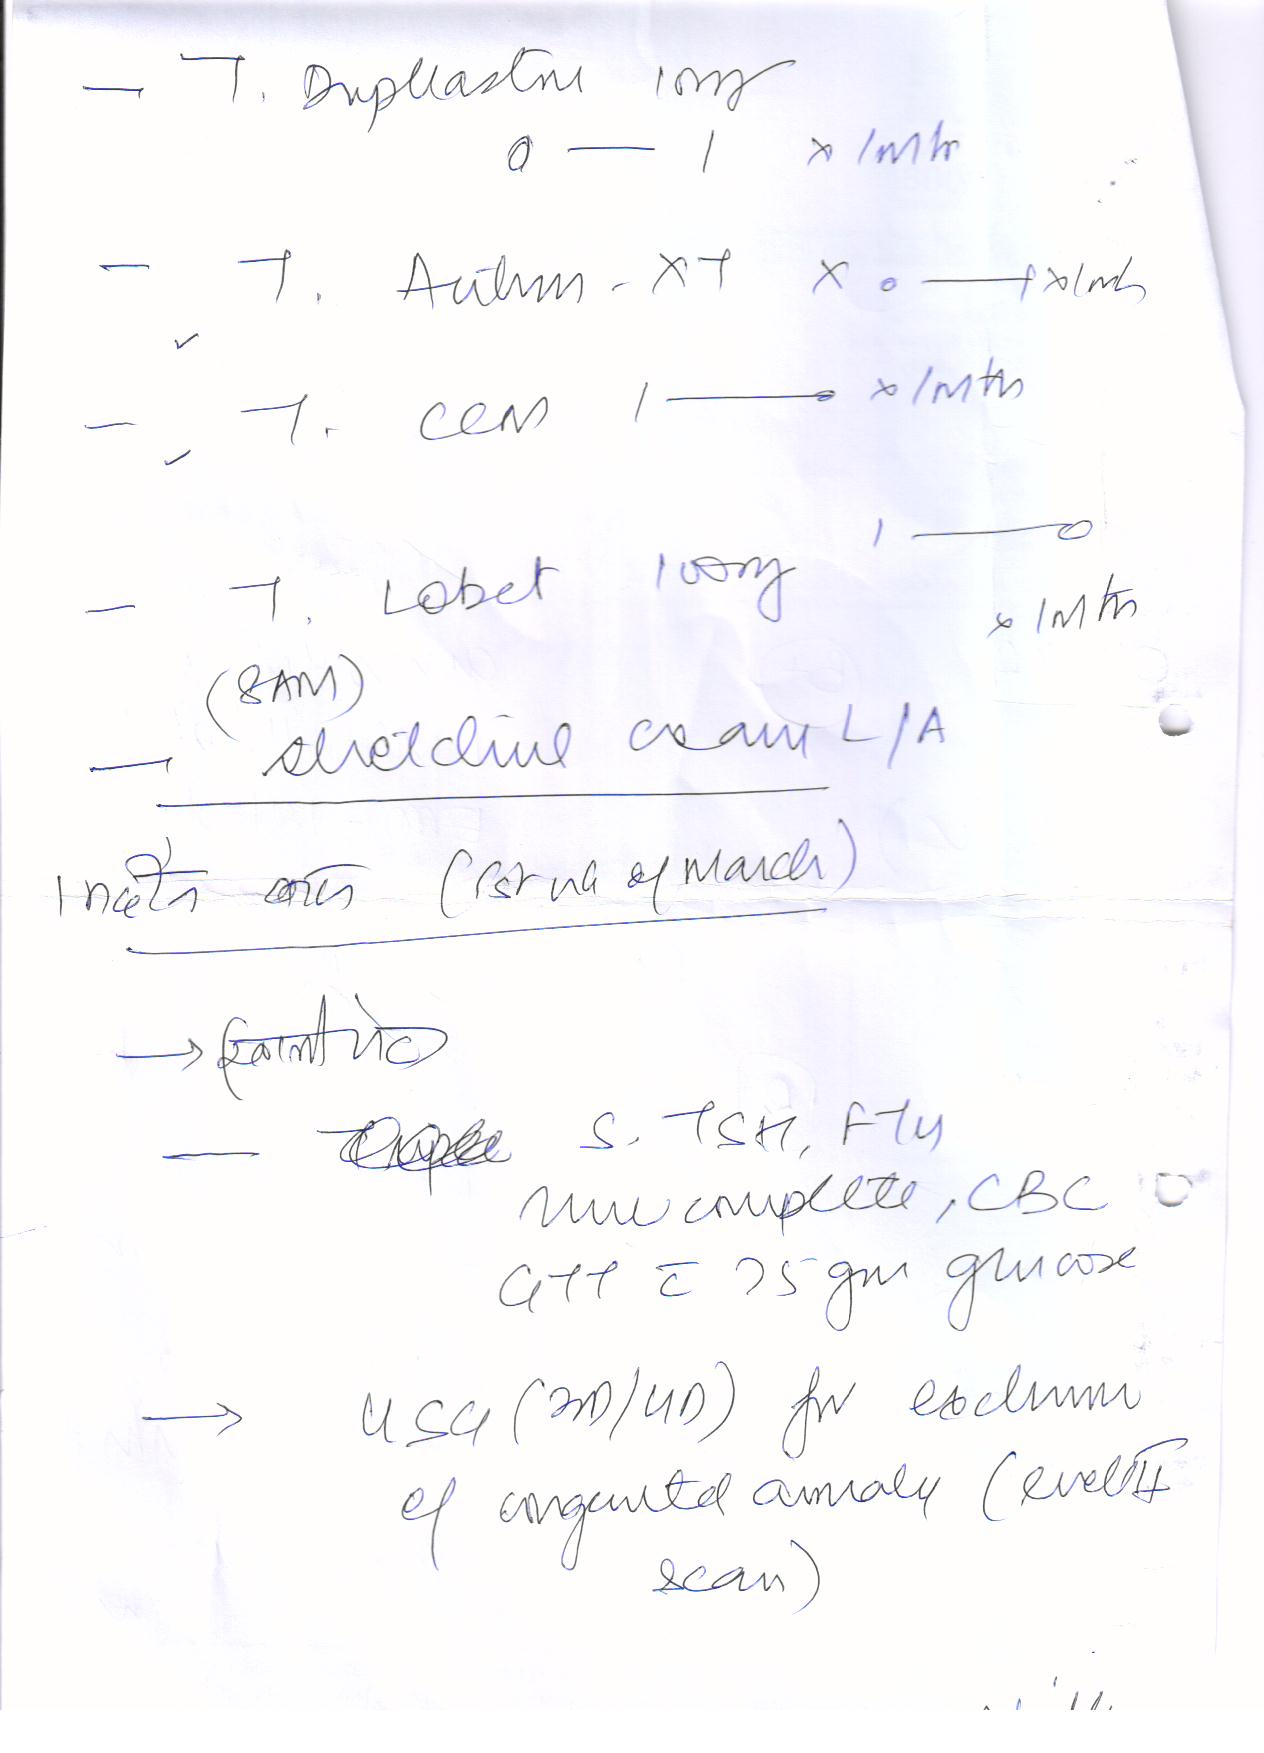 — T. Duphaston 10mg
0 — 1 x 1mth
— T. Autrin - XT x 0 — 1 x 1mth
— T. CCM 1 — 0 x 1mth
— T. Lobet 100mg 1 — 0
x 1mth
(8AM)
— cream L/A
(1st wk of March)
→
— S. TSH, FT4
urine complete, CBC
GTT c̄ 75 gm glucose
→ USG (3D/4D) for exclusion
of congenital anomaly (level II
scan)